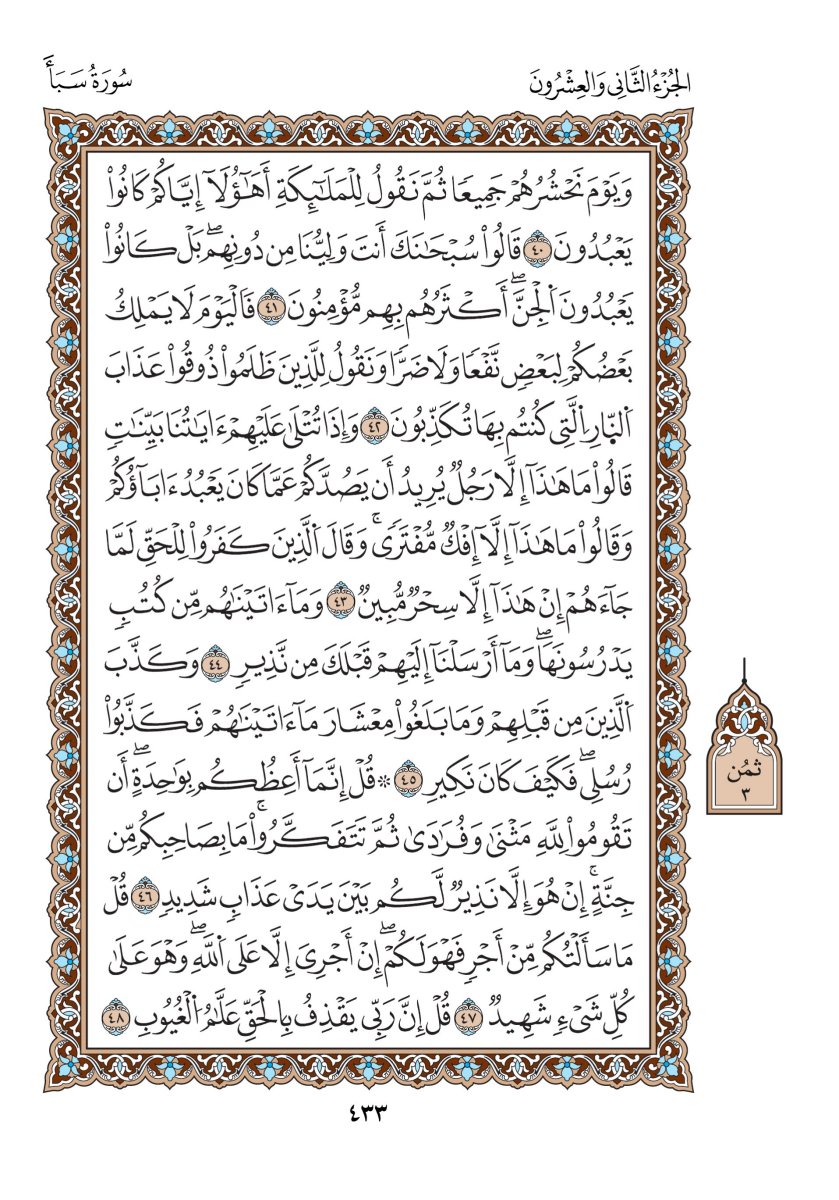 الجُزْءُ الثَّانِي وَالعِشْرُونَ
سُورَةُ سَبَأ
وَيَوْمَ نَحْشُرُهُمْ جَمِيعٗا ثُمَّ نَقُولُ لِلْمَلَٰٓئِكَةِ أَهَٰٓؤُلَآ إِيَّاكُمْ كَانُواْ
يَعْبُدُونَ ٤٠ قَالُواْ سُبْحَٰنَكَ أَنتَ وَلِيُّنَا مِن دُونِهِمۖ بَلْ كَانُواْ
يَعْبُدُونَ اَلْجِنَّۖ أَكْثَرُهُم بِهِم مُّؤْمِنُونَ ٤١ فَالْيَوْمَ لَا يَمْلِكُ
بَعْضُكُمْ لِبَعْضٖ نَّفْعٗا وَلَا ضَرّٗا وَنَقُولُ لِلَّذِينَ ظَلَمُواْ ذُوقُواْ عَذَابَ
اَلنّ۪ارِ اِلَّتِي كُنتُم بِهَا تُكَذِّبُونَ ٤٢ وَإِذَا تُتْلَىٰ عَلَيْهِمْ ءَايَٰتُنَا بَيِّنَٰتٖ
قَالُواْ مَا هَٰذَآ إِلَّا رَجُلٞ يُرِيدُ أَن يَصُدَّكُمْ عَمَّا كَانَ يَعْبُدُ ءَابَآؤُكُمْ
وَقَالُواْ مَا هَٰذَآ إِلَّآ إِفْكٞ مُّفْتَرٗىۚ وَقَالَ اَلَّذِينَ كَفَرُواْ لِلْحَقِّ لَمَّا
جَآءَهُمْ إِنْ هَٰذَآ إِلَّا سِحْرٞ مُّبِينٞ ٤٣ وَمَآ ءَاتَيْنَٰهُم مِّن كُتُبٖ
يَدْرُسُونَهَاۖ وَمَآ أَرْسَلْنَآ إِلَيْهِمْ قَبْلَكَ مِن نَّذِيرٖ ٤٤ وَكَذَّبَ
اَلَّذِينَ مِن قَبْلِهِمْ وَمَا بَلَغُواْ مِعْشَارَ مَآ ءَاتَيْنَٰهُمْ فَكَذَّبُواْ
رُسُلِيۖ فَكَيْفَ كَانَ نَكِيرِ ٤٥ ۞ قُلْ إِنَّمَآ أَعِظُكُم بِوَٰحِدَةٍۖ أَن
تَقُومُواْ لِلهِ مَثْنَىٰ وَفُرَٰدَىٰ ثُمَّ تَتَفَكَّرُواْۚ مَا بِصَاحِبِكُم مِّن
جِنَّةٍۚ إِنْ هُوَ إِلَّا نَذِيرٞ لَّكُم بَيْنَ يَدَيْ عَذَابٖ شَدِيدٖ ٤٦ قُلْ
مَا سَأَلْتُكُم مِّنْ أَجْرٖ فَهُوَ لَكُمْۖ إِنْ أَجْرِيَ إِلَّا عَلَى اَللَّهِۖ وَهُوَ عَلَىٰ
كُلِّ شَيْءٖ شَهِيدٞ ٤٧ قُلْ إِنَّ رَبِّي يَقْذِفُ بِالْحَقِّ عَلَّٰمُ اُلْغُيُوبِ ٤٨
ثُمُن
٣
٤٣٣